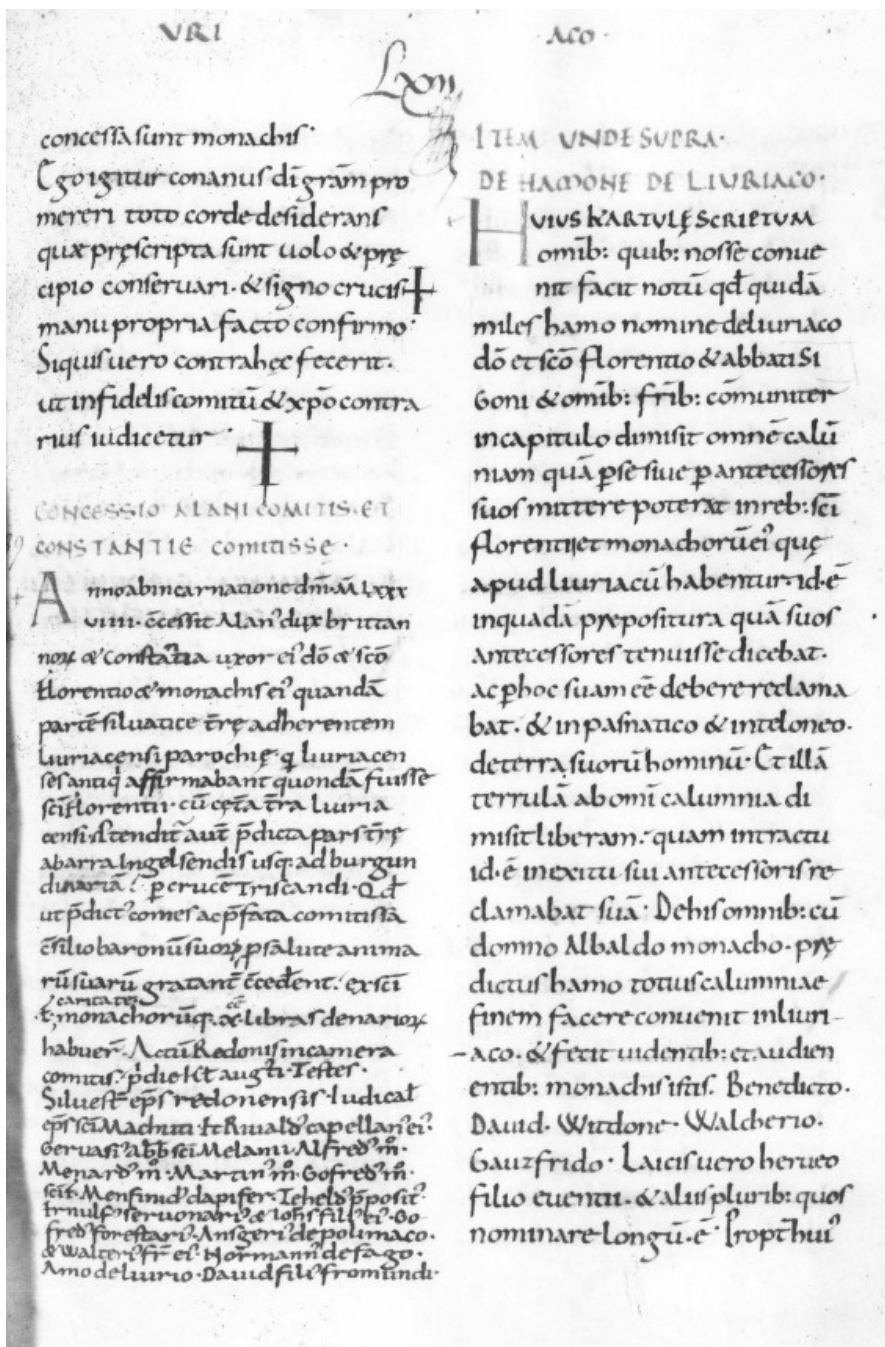 VRI ACO·
Lxii
concessa sunt monachis·
Ego igitur conanus dī grām pro
mereri toto corde desiderans
quæ pręscripta sunt uolo & prę
cipio conseruari· & signo crucis +
manu propria facto confirmo·
Siquis uero contra hęc fecerit·
ut infidelis comitū & xp̄o contra
rius iudicetur·
CONCESSIO ALANI COMITIS· ET
CONSTANTIE COMITISSE·
Anno ab incarnatione dn̄i· M LXXX
VIIII· c̄cessit Alan' dux brittan
noꝝ & Constātia uxor ei' dō & scō
florentio & monachis ei' quandā
partē siluatice t̄rę adherentem
liuriacensi parochię· q̄ liuriacen
ses antiqi affirmabant quondā fuisse
sc̄i florentii· cū cęt̄a t̄ra liuria
censi· Ꝑtendit̄ aut̄ p̄dicta pars t̄rę
abarra Ingelsendis usq; ad burgun
p̄ crucē Triscandi· Qđ
ut p̄dict' comes ac p̄fata comitissa
c̄silio baronū suoꝝ p̄ salute anima
rū suarū gratant̄ c̄cedent̄· ex sc̄i
caritate cc̄
f̄· monachorūq; libras denarioꝝ
habuer̄· Actū Redonis in camera
comitis· p̄die kl̄ augti· Testes·
Siluest̄ ep̄s redonensis· Iudical̄
ep̄s sc̄i Machuti· Riuald' capellan' ei'·
Geruasi' abb̄ sc̄i Melanii· Alfred' m̄·
Menard' m̄· Martin' m̄· Gofred' m̄·
Menfinid' dapifer· Teheld' p̄posit'·
ernulf' seruonari' & Iohs fili' ei'· Go
fred' forestari'· Ansgeri' de polimaco·
& Walteri' fr̄ ei'· Normann' de fago·
Amo de liurio· Dauid fili' fromundi·
ITEM UNDE SUPRA·
DE HAMONE DE LIURIACO·
HUIUS KARTULĘ SCRIPTUM
omīb: quib: nosse conue
nit facit notū qđ quidā
miles hamo nomine de liuriaco
dō et scō florentio & abbati Si
goni & omīb: fr̄ib: cōmuniter
in capitulo dimisit omnē calū
niam quā p̄ se siue p̄ antecessores
suos mittere poterat in reb: sc̄i
florentii et monachorū ei' quę
apud liuriacū habentur· id· ē
in quadā prępositura quā suos
antecessores tenuisse dicebat·
ac p̄ hoc suam eē debere reclama
bat· & in pasnatico & in teloneo·
de terra suorū hominū· Et illā
terrulā ab omī calumnia di
misit liberam· quam in tractu
id· ē in exitu sui antecessoris re
clamabat suā· De his omnib: cū
domno Albaldo monacho· prę
dictus hamo totius calumniae
finem facere conuenit in liuri-
-aco· & fecit uidentib: et audien
entib: monachis istis· Benedicto·
Dauid· Witdone· Walcherio·
Gauzfrido· Laicis uero herueo
filio euentii· & aliis plurib: quos
nominare longū· ē· Propt̄ hui'